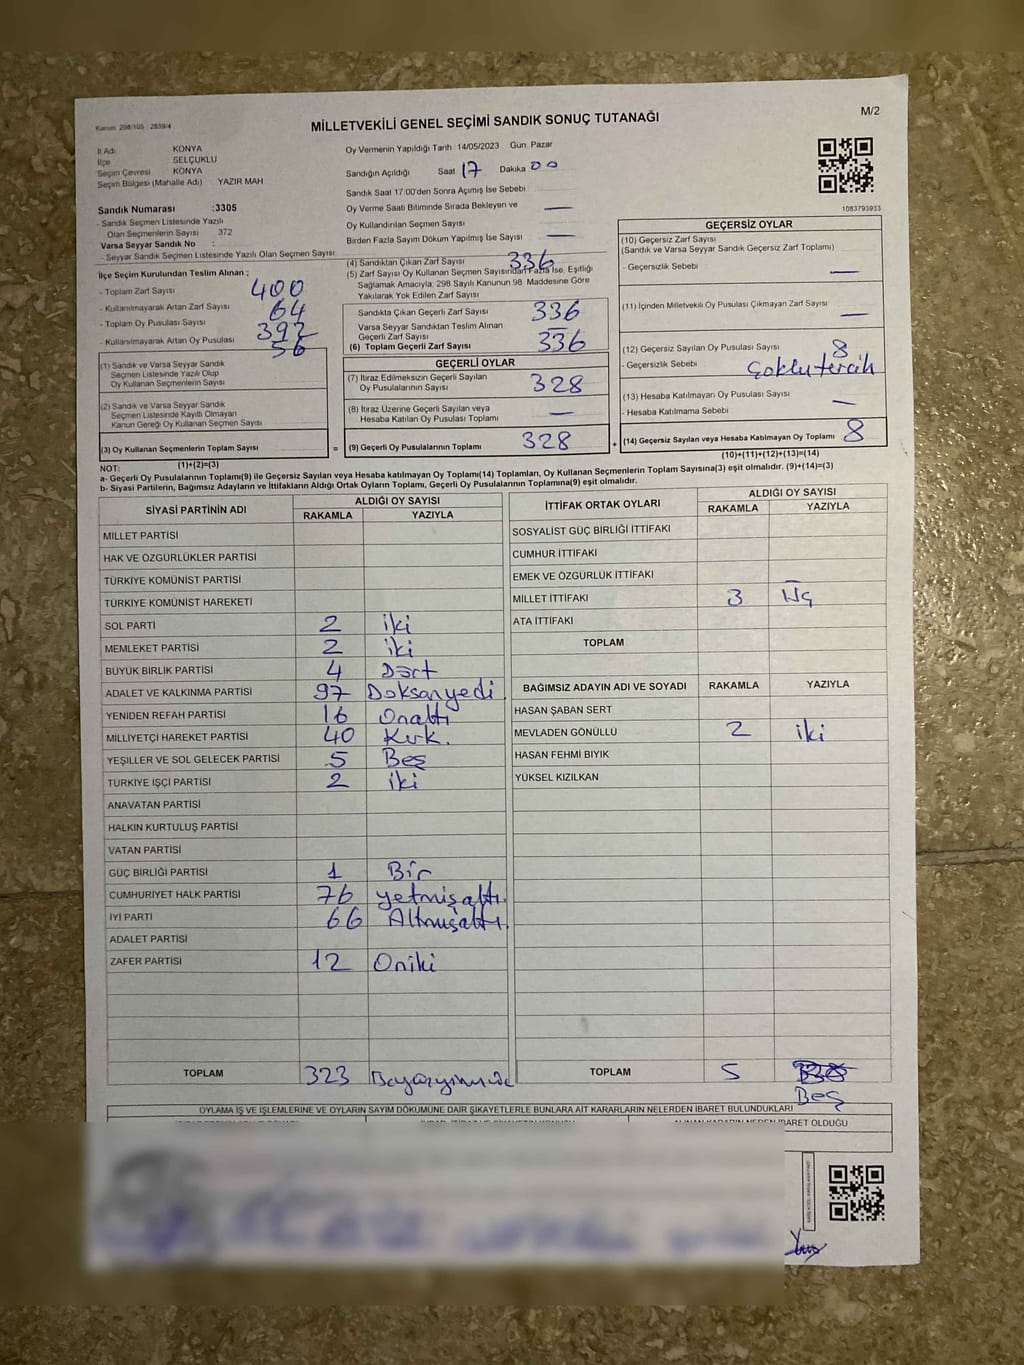 Kanun: 298/105 : 2839/4
M/2
MİLLETVEKİLİ GENEL SEÇİMİ SANDIK SONUÇ TUTANAĞI
İl Adı KONYA
İlçe SELÇUKLU
Seçim Çevresi KONYA
Seçim Bölgesi (Mahalle Adı) YAZIR MAH
Sandık Numarası :3305
- Sandık Seçmen Listesinde Yazılı
Olan Seçmenlerin Sayısı 372
Varsa Seyyar Sandık No :
- Seyyar Sandık Seçmen Listesinde Yazılı Olan Seçmen Sayısı
İlçe Seçim Kurulundan Teslim Alınan ;
- Toplam Zarf Sayısı 400
- Kullanılmayarak Artan Zarf Sayısı 64
- Toplam Oy Pusulası Sayısı 392
- Kullanılmayarak Artan Oy Pusulası 56
(1) Sandık ve Varsa Seyyar Sandık
Seçmen Listesinde Yazılı Olup
Oy Kullanan Seçmenlerin Sayısı
(2) Sandık ve Varsa Seyyar Sandık
Seçmen Listesinde Kayıtlı Olmayan
Kanun Gereği Oy Kullanan Seçmen Sayısı
(3) Oy Kullanan Seçmenlerin Toplam Sayısı
(1)+(2)=(3)
Oy Vermenin Yapıldığı Tarih :14/05/2023 Gün: Pazar
Sandığın Açıldığı Saat 17 Dakika 00
Sandık Saat 17:00'den Sonra Açımış İse Sebebi
Oy Verme Saati Bitiminde Sırada Bekleyen ve —
Oy Kullandırılan Seçmen Sayısı
Birden Fazla Sayım Döküm Yapılmış İse Sayısı —
(4) Sandıktan Çıkan Zarf Sayısı 336
(5) Zarf Sayısı Oy Kullanan Seçmen Sayısından Fazla İse, Eşitliği
Sağlamak Amacıyla, 298 Sayılı Kanunun 98. Maddesine Göre
Yakılarak Yok Edilen Zarf Sayısı
Sandıkta Çıkan Geçerli Zarf Sayısı 336
Varsa Seyyar Sandıktan Teslim Alınan
Geçerli Zarf Sayısı —
(6) Toplam Geçerli Zarf Sayısı 336
GEÇERLİ OYLAR
(7) İtiraz Edilmeksizin Geçerli Sayılan
Oy Pusulalarının Sayısı 328
(8) İtiraz Üzerine Geçerli Sayılan veya
Hesaba Katılan Oy Pusulası Toplamı —
= (9) Geçerli Oy Pusulalarının Toplamı 328
1083793933
GEÇERSİZ OYLAR
(10) Geçersiz Zarf Sayısı
(Sandık ve Varsa Seyyar Sandık Geçersiz Zarf Toplamı)
- Geçersizlik Sebebi —
(11) İçinden Milletvekili Oy Pusulası Çıkmayan Zarf Sayısı —
(12) Geçersiz Sayılan Oy Pusulası Sayısı 8
- Geçersizlik Sebebi Çoklu tercih
(13) Hesaba Katılmayan Oy Pusulası Sayısı —
- Hesaba Katılmama Sebebi
+ (14) Geçersiz Sayılan veya Hesaba Katılmayan Oy Toplamı 8
(10)+(11)+(12)+(13)=(14)
NOT:
a- Geçerli Oy Pusulalarının Toplamı(9) ile Geçersiz Sayılan veya Hesaba katılmayan Oy Toplamı(14) Toplamları, Oy Kullanan Seçmenlerin Toplam Sayısına(3) eşit olmalıdır. (9)+(14)=(3)
b- Siyasi Partilerin, Bağımsız Adayların ve İttifakların Aldığı Ortak Oyların Toplamı, Geçerli Oy Pusulalarının Toplamına(9) eşit olmalıdır.
SİYASİ PARTİNİN ADI ALDIĞI OY SAYISI
RAKAMLA YAZIYLA
MİLLET PARTİSİ
HAK VE ÖZGÜRLÜKLER PARTİSİ
TÜRKİYE KOMÜNİST PARTİSİ
TÜRKİYE KOMÜNİST HAREKETİ
SOL PARTİ 2 iki
MEMLEKET PARTİSİ 2 iki
BÜYÜK BİRLİK PARTİSİ 4 Dört
ADALET VE KALKINMA PARTİSİ 97 Doksanyedi
YENİDEN REFAH PARTİSİ 16 Onaltı
MİLLİYETÇİ HAREKET PARTİSİ 40 Kırk.
YEŞİLLER VE SOL GELECEK PARTİSİ 5 Beş
TÜRKİYE İŞÇİ PARTİSİ 2 iki
ANAVATAN PARTİSİ
HALKIN KURTULUŞ PARTİSİ
VATAN PARTİSİ
GÜÇ BİRLİĞİ PARTİSİ 1 Bir
CUMHURİYET HALK PARTİSİ 76 yetmişaltı.
İYİ PARTİ 66 Altmışaltı.
ADALET PARTİSİ
ZAFER PARTİSİ 12 Oniki
TOPLAM 323
İTTİFAK ORTAK OYLARI ALDIĞI OY SAYISI
RAKAMLA YAZIYLA
SOSYALİST GÜÇ BİRLİĞİ İTTİFAKI
CUMHUR İTTİFAKI
EMEK VE ÖZGÜRLÜK İTTİFAKI
MİLLET İTTİFAKI 3 Üç
ATA İTTİFAKI
TOPLAM
BAĞIMSIZ ADAYIN ADI VE SOYADI RAKAMLA YAZIYLA
HASAN ŞABAN SERT
MEVLADEN GÖNÜLLÜ 2 iki
HASAN FEHMİ BIYIK
YÜKSEL KIZILKAN
TOPLAM 5
Beş
OYLAMA İŞ VE İŞLEMLERİNE VE OYLARIN SAYIM DÖKÜMÜNE DAİR ŞİKAYETLERLE BUNLARA AİT KARARLARIN NELERDEN İBARET BULUNDUKLARI
ALINAN KARARIN NEDEN İBARET OLDUĞU